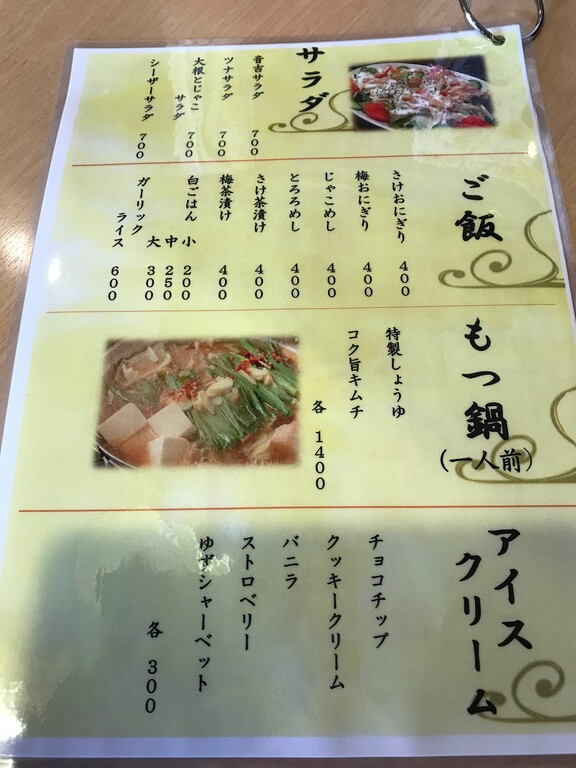 サラダ
音吉サラダ 700
ツナサラダ 700
大根とじゃこ
サラダ 700
シーザーサラダ 700
ご飯
さけおにぎり 400
梅おにぎり 400
じゃこめし 400
とろろめし 400
さけ茶漬け 400
梅茶漬け 400
白ごはん
小 200
中 250
大 300
ガーリック
ライス 600
もつ鍋
(一人前)
特製しょうゆ
コク旨キムチ
各 1400
アイス
クリーム
チョコチップ
クッキークリーム
バニラ
ストロベリー
ゆずシャーベット
各 300